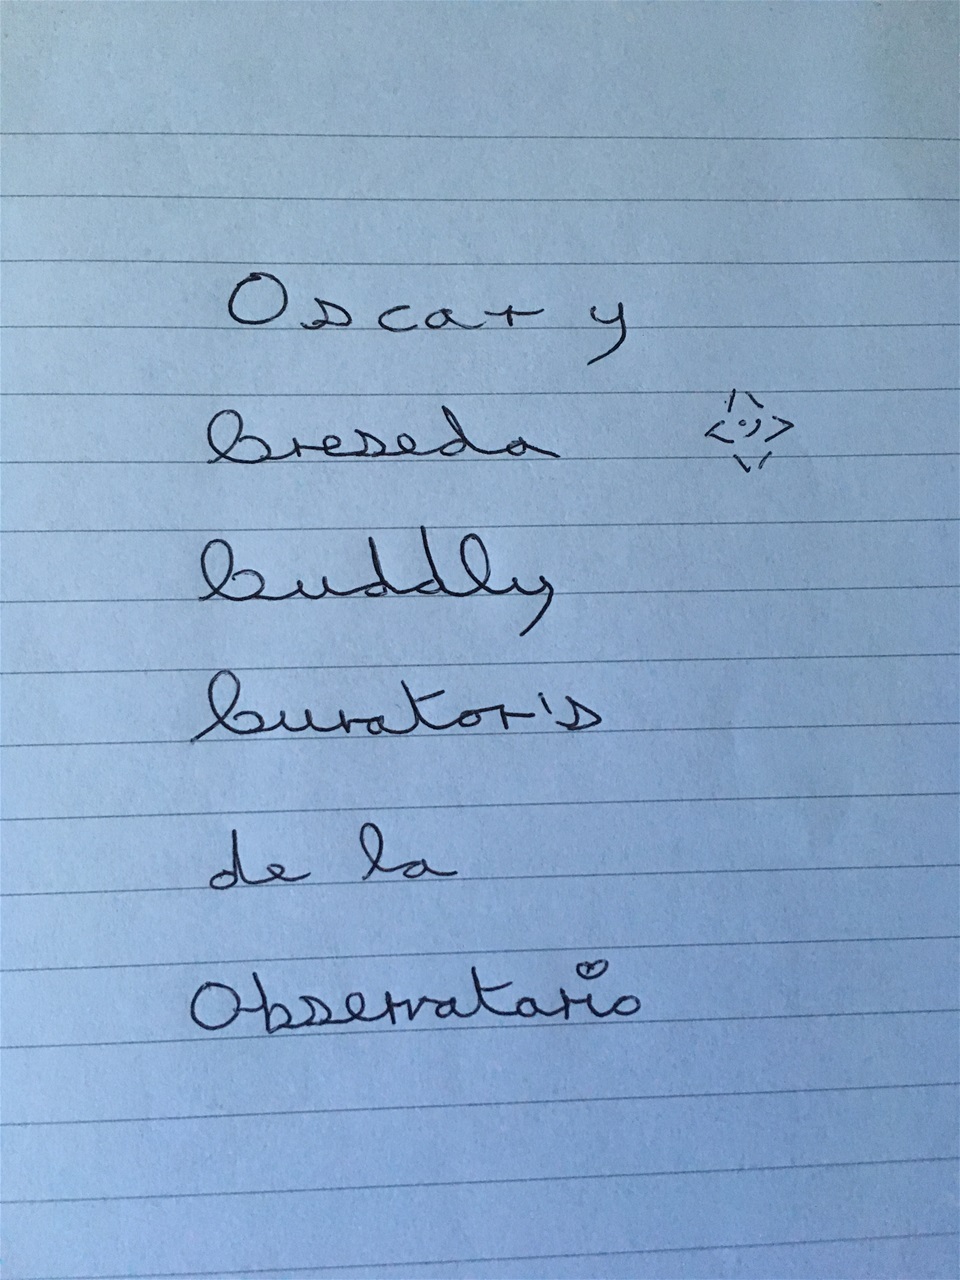 Oscar y
Creseda
Cuddly
Curator's
de la
Observatario